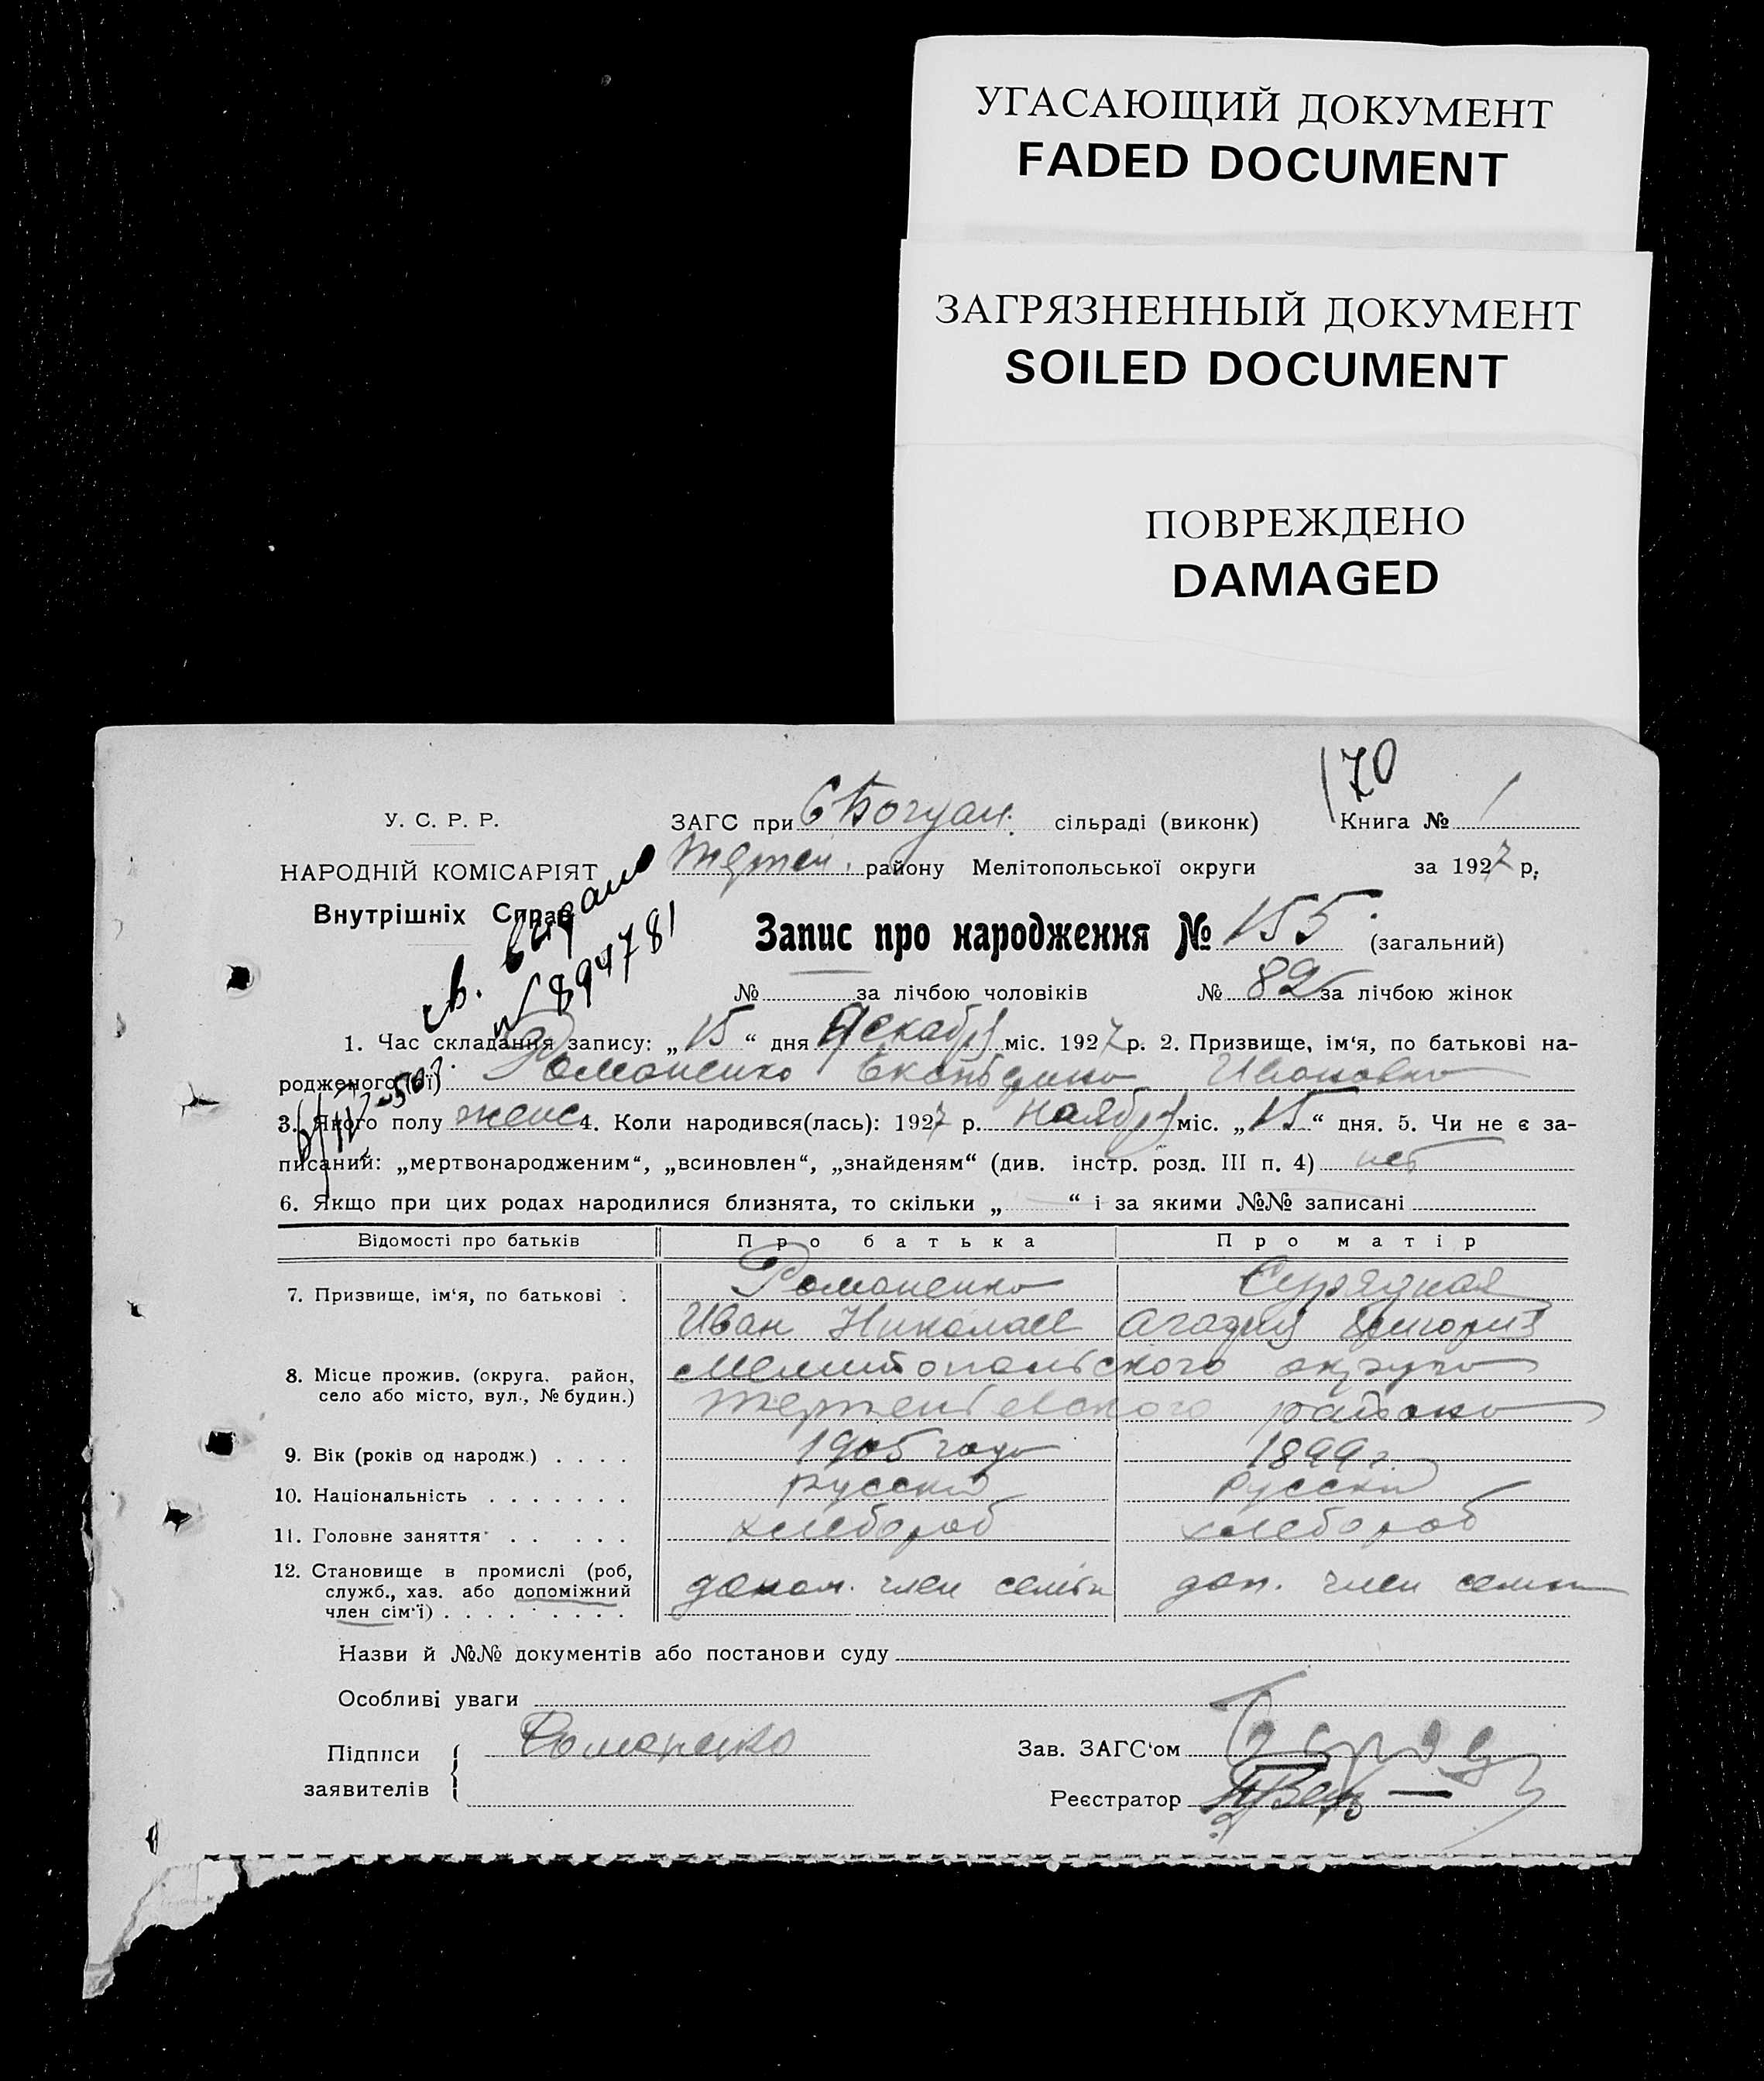 УГАСАЮЩИЙ ДОКУМЕНТ
FADED DOCUMENT
ЗАГРЯЗНЕННЫЙ ДОКУМЕНТ
SOILED DOCUMENT
ПОВРЕЖДЕНО
DAMAGED
170
У. С. Р. Р.
ЗАГС при С Богдан. сільраді (виконк) Книга № 1
НАРОДНІЙ КОМІСАРІЯТ
Терпен. району Мелітопольської округи за 1927 р.
Внутрішніх Справ
св. выдано
№ 894781
Запис про народження № 155 (загальний)
№ за лічбою чоловіків № 82 за лічбою жінок
1. Час складання запису: „15“ дня Декабря міс. 1927 р. 2. Призвище, ім‘я, по батькові на-
родженого (ої) Романенко Екатерина Ивановна
3. Якого полу женс 4. Коли народився(лась): 1927 р. ноября міс. „15“ дня. 5. Чи не є за-
писаний: „мертвонародженим“, „всиновлен“, „знайденям“ (див. інстр. розд. III п. 4) нет
6. Якщо при цих родах народилися близнята, то скільки „ “ і за якими №№ записані
Відомості про батьків Про батька Про матір
7. Призвище, ім‘я, по батькові . Романенко
Иван Николаев
8. Місце прожив. (округа, район, село або місто, вул., № будин.) Мелитопольского округа
Терпеньевского района
9. Вік (років од народж.) . . . . 1905 года 1899 г.
10. Національність . . . . . . . русский русский
11. Головне заняття . . . . . хлебороб хлебороб
12. Становище в промислі (роб, служб., хаз. або допоміжний член сім‘ї) . . . . . . . . . член семьи доп. член семьи
Назви й №№ документів або постанови суду
Особливі уваги
Підписи заявителів { Романенко
Зав. ЗАГС‘ом
Реєстратор